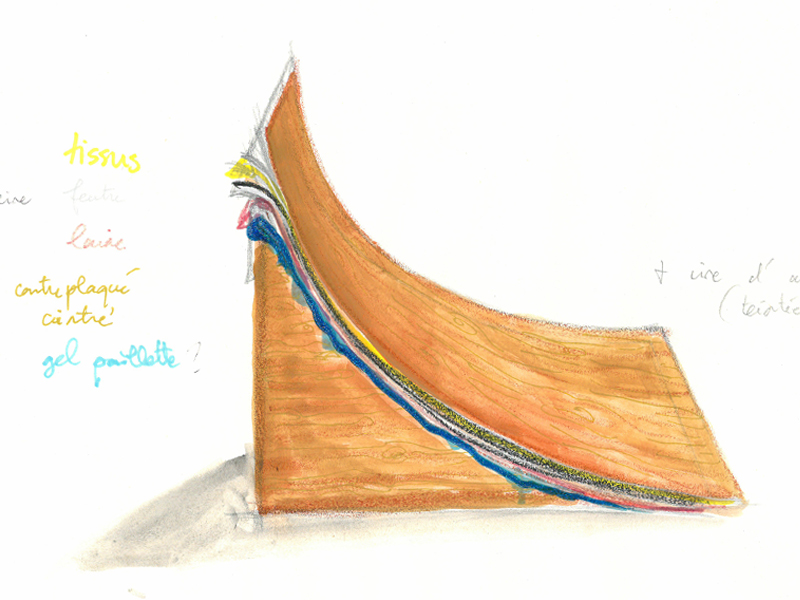 tissus
feutre
laine
contreplaqué
cintré
gel paillette !
+ cire d'a
(teintée